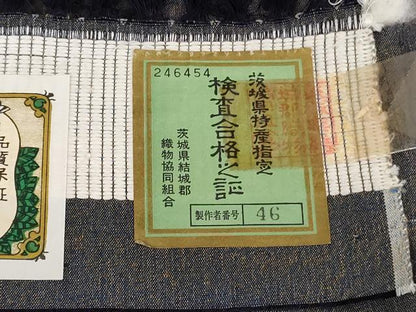 246454
茨城県特産指定
検査合格之証
茨城県結城郡
織物協同組合
製作者番号 46
品質保証